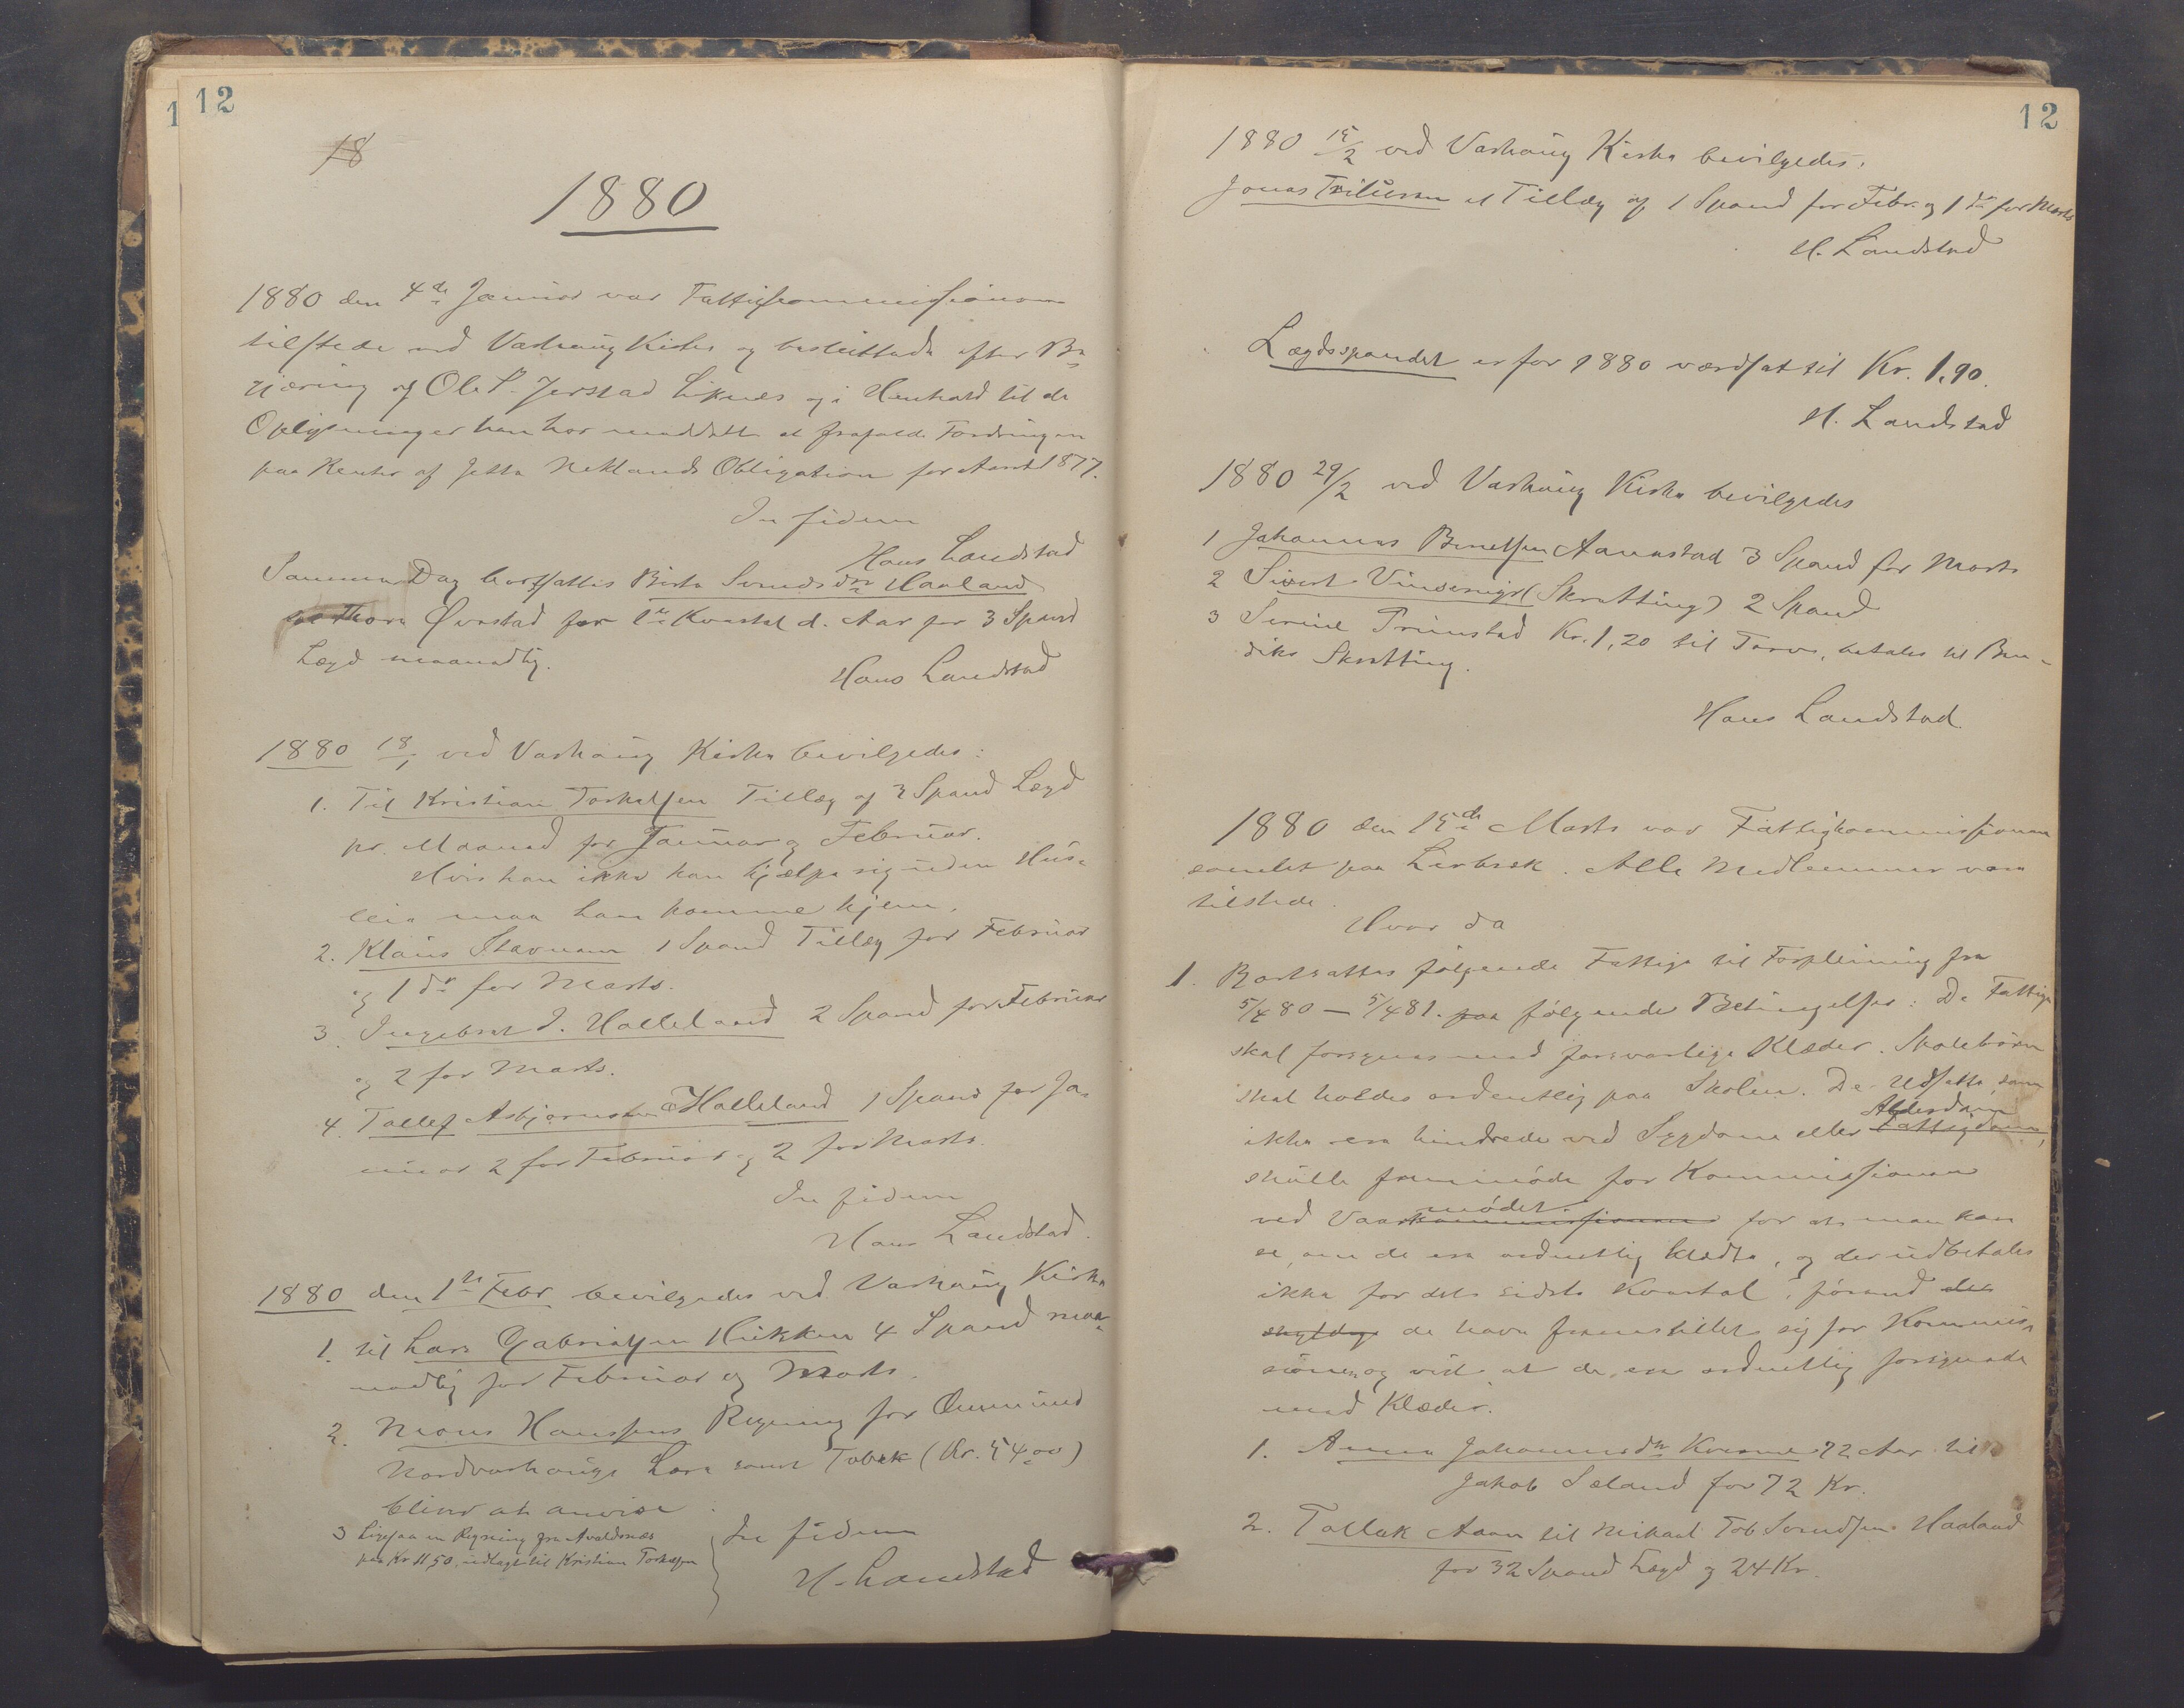 1
12
18
1880
1880 den 4de Januar var Fattigkommissionen
tilstede ved Varhaug Kirke og besluttede efter Be-
gjæring af Ole P. Jerstad Liknes og i Henhold til de
Oplysninger han har meddelt at frafalde Fordringen
paa Renter af Jetta Neklands Obligation for Aaret 1877.
In fidem
Hans Landstad
Samme Dag bortsattes Berta Svendsdtr Haaland
til Thore Øvrstad for 1ste Kvartal d. Aar for 3 Spand
Lægd maanedlig.
Hans Landstad
1880 18/1 ved Varhaug Kirke bevilgedes:
1. Til Kristian Torkelsen Tillæg af 3 Spand Lægd
pr. Maaned for Januar og Februar.
Hvis han ikke kan hjælpe sig uden Hus-
leie maa han komme hjem.
2. Klaus Stavnem 1 Spand Tillæg for Februar
og 1 do for Marts.
3. Ingebret J. Halleland 2 Spand for Februar
og 2 for Marts.
4. Tollef Asbjørnsen Halleland 1 Spand for Ja-
nuar 2 for Februar og 2 for Marts.
In fidem
Hans Landstad.
1880 den 1ste Febr bevilgedes ved Varhaug Kirke
1. til Lars Gabrielsen Hukken 4 Spand maa-
nedlig for Februar og Marts.
2. Mons Hansens Regning for Ommund
Nordvarhaugs Lære samt Tobak (Kr. 54 00)
bliver at anvise.
3 Ligesaa en Regning fra Avaldsnæs
paa Kr 11,50, udlagt til Kristian Torkelsen
In fidem
H. Landstad
12
1880 15/2 ved Varhaug Kirke bevilgedes:
Jonas et Tillæg af 1 Spand for Febr. og 1 do for Marts
H. Landstad
Lægdsspandet er for 1880 værdsat til Kr. 1,90.
H. Landstad
1880 29/2 ved Varhaug Kirke bevilgedes
1 Johannes Berntsen Aanestad 3 Spand for Marts
2 Sivert (Skratting) 2 Spand
3 Serine Primstad Kr. 1,20 til Torv, betales til Ben-
dik Skratting.
Hans Landstad
1880 den 15de Marts var Fattigkommissionen
samlet paa Lerbrek. Alle Medlemmer vare
tilstede.
Hvor da
1. Bortsattes følgende Fattige til Forpleining fra
5/4 80 — 5/4 81. paa følgende Betingelser: De Fattige
skal forsynes med forsvarlige Klæder. Skolebørn
skal holdes ordentlig paa Skolen. De Udsatte, som
ikke ere hindrede ved Sygdom eller Fattigdom,
Alderdom
skulle fremmøde for Kommissionen
ved Vaarkommissionen for at man kan
mødet.
se, om de ere ordentlig klædte, og der udbetales
ikke for det sidste Kvartal, førend
de have fremstillet sig for Kommis-
sionen og vist at de ere ordentlig forsynede
med Klæder.
1. Anna Johannesdtr Kvasme 72 Aar til
Jakob Sæland for 72 Kr.
2. Tollak Aaen til Mikael Tob Svendsen Haaland
for 32 Spand Lægd og 24 Kr.